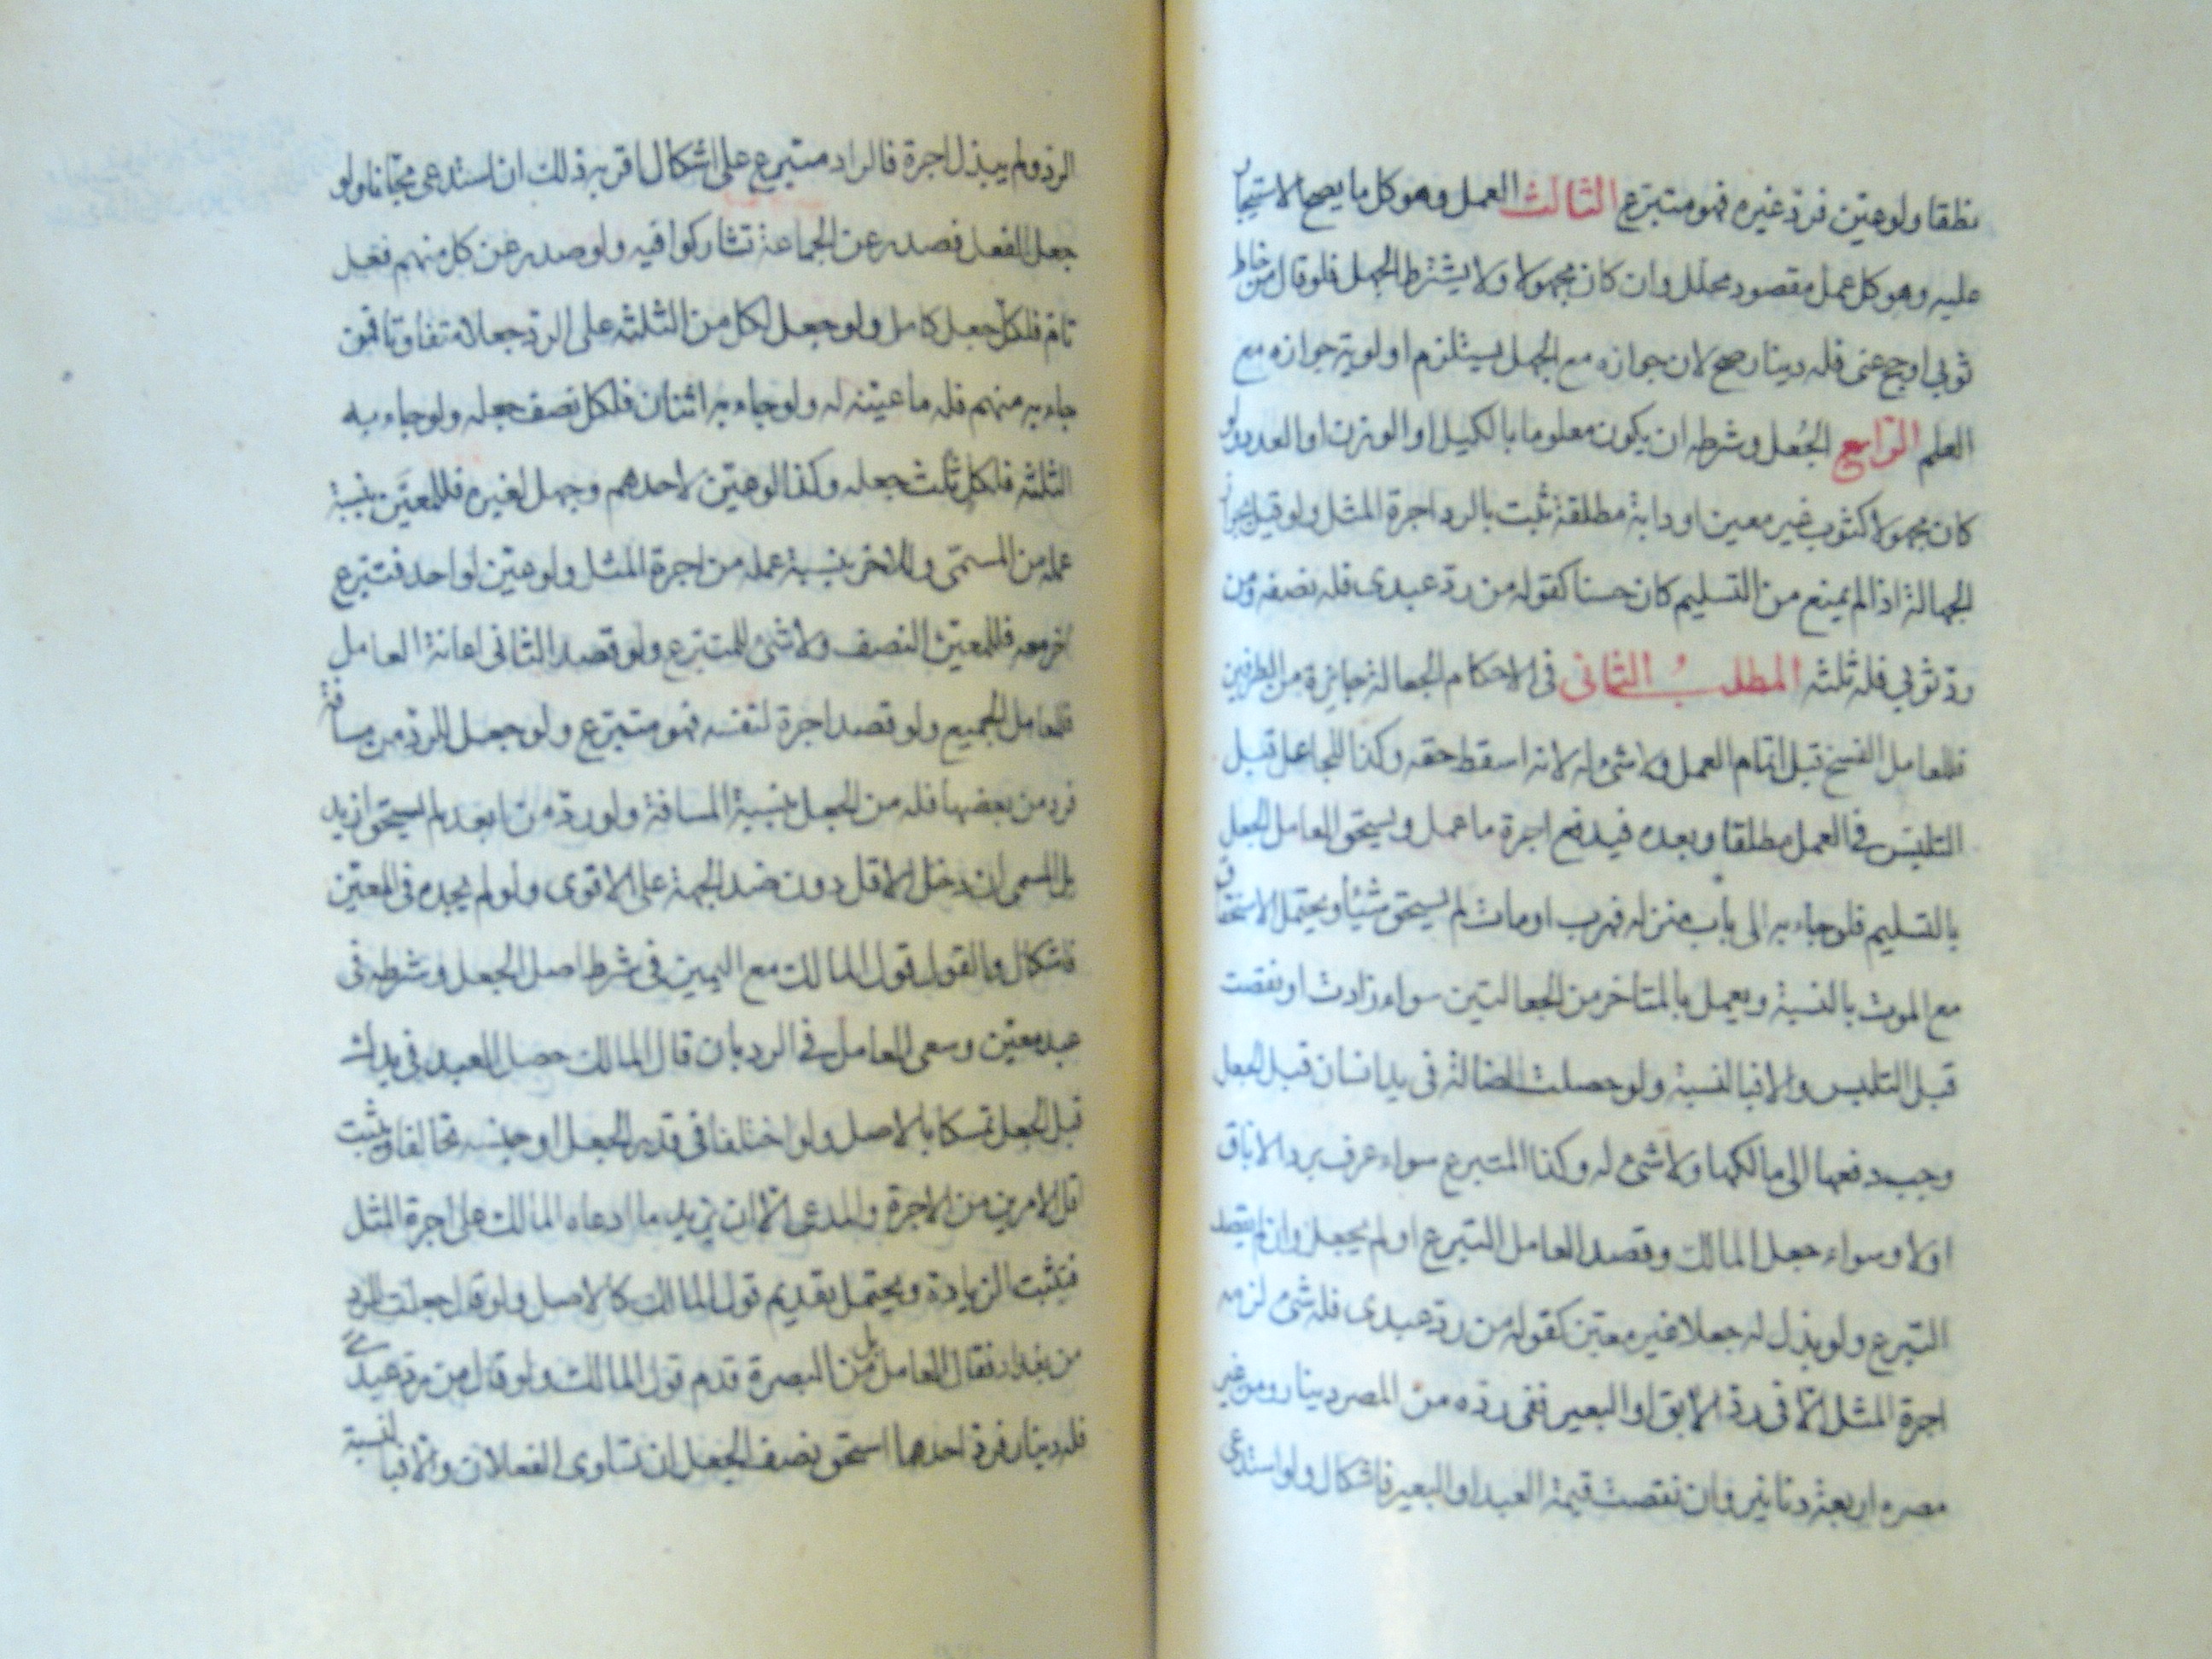 نطقا ولو عيّن فردّ غيره فهو متبرّع الثالث العمل وهو كل ما يصح الاستيجار
عليه وهو كل عمل مقصود محلّل وان كان مجهولا ولا يشترط الجهل فلو قال من خاط
ثوبى اوحج عنى فله دينار صح لان جوازه مع الجهل يستلزم اولوية جوازه مع
العلم الرّابع الجُعل وشرطه ان يكون معلوما بالكيل او الوزن او العدد ولو
كان مجهولا كثوب غير معين او دابة مطلقة ثبت بالرد اجرة المثل ولو قيل بجواز
الجهالة اذا لم يمنع من التسليم كان حسنا كقوله من ردّ عبدى فله نصفه ومن
ردّ ثوبي فله ثلثه المطلب الثانى فى الاحكام الجعالة جايزة من الطرفين
فللعامل الفسخ قبل اتمام العمل ولا شئ له لانه اسقط حقه وكذا للجاعل قبل
التلبّس في العمل مطلقا وبعده فيدفع اجرة ما عمل ويستحق العامل الجعل
بالتسليم فلو جاء به الى باب منزله فهرب او مات لم يستحق شيئا ويحتمل الاستحقاق
مع الموت بالنسبة ويعمل بالمتاخر من الجعالتين سواء زادت او نقصت
قبل التلبس والا فبالنسبة ولو حصلت الضالة فى يد انسان قبل الجعل
وجب دفعها الى مالكها ولا شئ له وكذا المتبرع سواء عرف برد الاباق
اولا وسواء جعل المالك وقصد العامل التبرع او لم يجعل وان لم يقصد
التبرع ولو بذل له جعلا غير معيّن كقوله من ردّ عبدى فله شئ لزمه
اجرة المثل الّا فى ردّ الآبق او البعير ففى ردّه من المصر دينار ومن غير
مصره اربعة دنانير وان نقصت قيمة العبد او البعير فاشكال ولو استدعى
الرد ولم يبذل اجرة فالراد متبرع على اشكال اقربه ذلك ان استدعى مجانا ولو
جعل لفعل فصدر عن الجماعة تشاركوا فيه ولو صدر عن كل منهم فعل
تام فلكل جعل كامل ولو جعل لكل من الثلثه على الردّ جعلا متفاوتا فمن
جاء به منهم فله ما عيّنه له ولو جاء به اثنان فلكل نصف جعله ولو جاء به
الثلثه فلكل ثلث جعله وكذا لو عيّن لاحدهم وجهل لغيره فللمعيّن بنسبة
عمله من المسمّى وللاخر بنسبة عمله من اجرة المثل ولو عين لواحد فتبرع
آخر معه فللمعيّن النصف ولا شئ للمتبرع ولو قصد الثانى اعانة العامل
فللعامل الجميع ولو قصد اجرة لنفسه فهو متبرّع ولو جعل للردّ من مسافة
فردّ من بعضها فله من الجعل بنسبة المسافة ولو ردّه من ابعد لم يستحق ازيد
بل المسمى ان دخل الاقل دون ضد الجهة على الاقوى ولو لم يجده فى المعيّن
فاشكال والقول قول المالك مع اليمين فى شرط اصل الجعل وشرطه فى
عبد معيّن وسعى العامل في الرد بان قال المالك حصل العبد فى يدك
قبل الجعل تمسكا بالاصل ولو اختلفا فى قدر الجعل او جنسه تحالفا ويثبت
اقل الامرين من الاجرة والمدعى الّا ان يزيد ما ادعاه المالك على اجرة المثل
فتثبت الزيادة ويحتمل تقديم قول المالك كالاصل ولو قال جعلت للرد
من بغداد فقال العامل بل من البصرة قدم قول المالك ولو قال من ردّ عبدىّ
فله دينار فردّ احدهما استحق نصف الجعل ان تساوى الفعلان والّا فبالنسبة